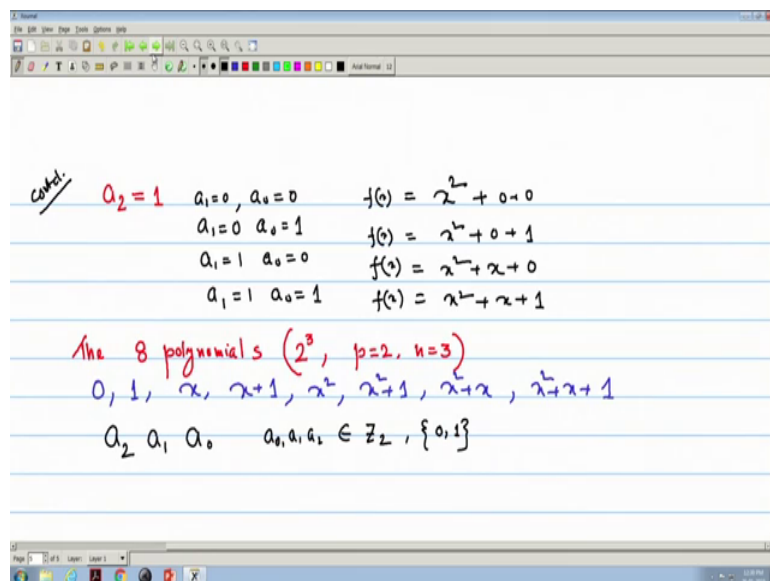 Journal
File Edit View Page Tools Options Help
Arial Normal 12
contd. a₂ = 1 a₁=0, a₀=0 f(x) = x² + 0+0
a₁=0 a₀=1 f(x) = x² + 0 + 1
a₁=1 a₀=0 f(x) = x² + x + 0
a₁=1 a₀=1 f(x) = x² + x + 1
The 8 polynomials (2³, p=2, n=3)
0, 1, x, x+1, x², x²+1, x²+x, x²+x+1
a₂ a₁ a₀ a₀,a₁a₂ ∈ Z₂, {0,1}
Page 5 of 5 Layer: Layer 1